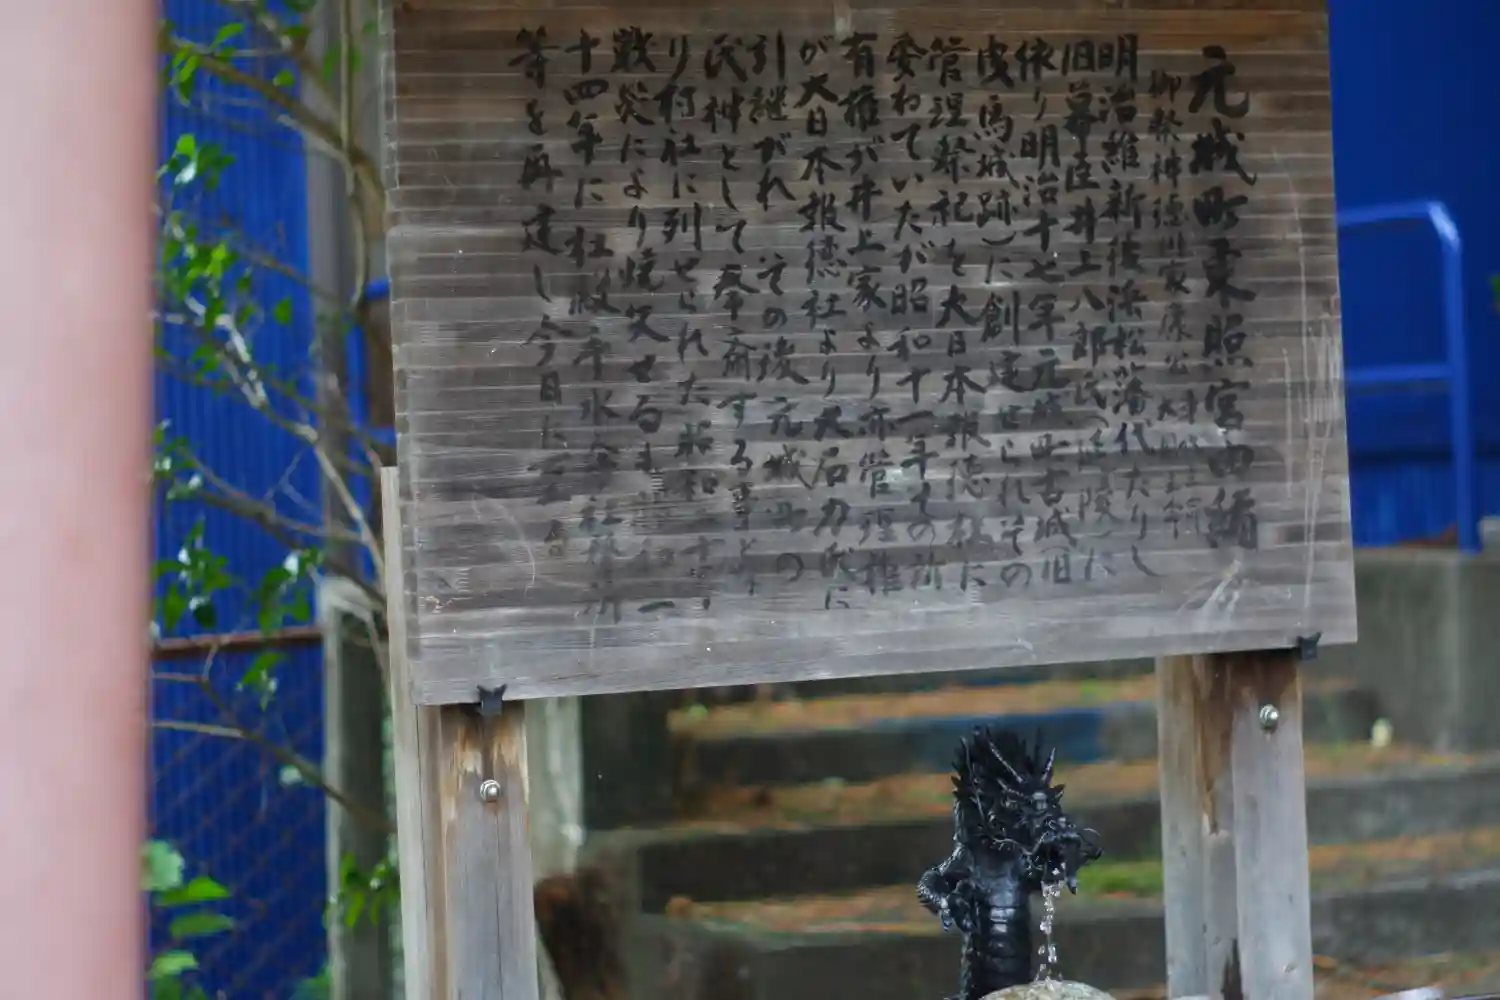 元城町東照宮由緒
御祭神徳川家康公
明治維新後浜松藩代たりし
旧幕臣井上八郎氏(延陵)に
依り明治十七年元城町古城(旧
曳馬城跡)に創建せられその
管理祭祀を大日本報徳社に
委ねていたが昭和十一年その所
有権が井上家より亦管理権
が大日本報徳社より大石力氏に
引継がれ その後元城町の
氏神として奉斎する事となり
り村社に列せられた 昭和二十
戦災により焼失せるも 一
十四年に社殿手水舎社務所
等を再建し今日に至る